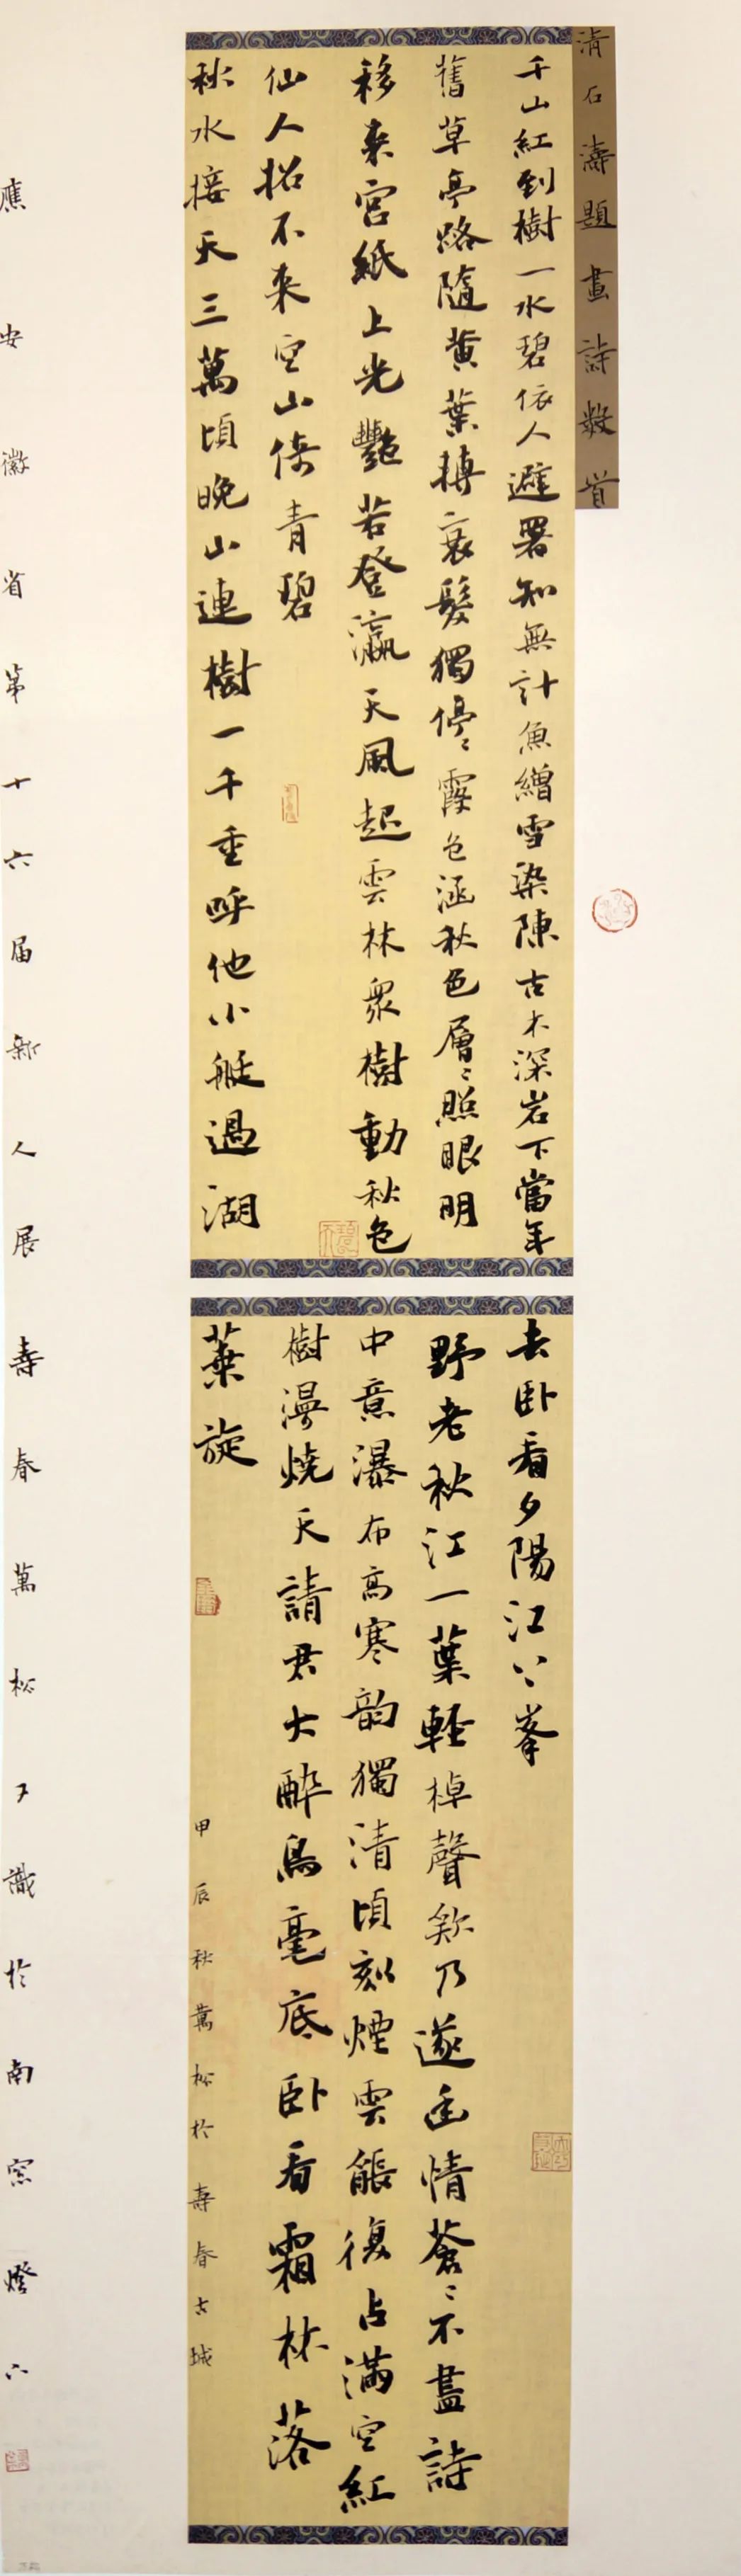 清石濤題畫詩數首
千山紅到樹一水碧依人避署知無計魚繒雪染陳古木深岩下當年
舊草亭路隨黄葉摶衰髮獨停〻霞色涵秋色層〻照眼明
移来宮紙上光艷若登瀛天風起雲林衆樹動秋色
仙人招不来空山倚青碧
秋水接天三萬頃晚山連樹一千重呼他小艇過湖
去卧看夕陽江上峯
野老秋江一葉輕棹聲欸乃遂幽情蒼〻不盡詩
中意瀑布高寒韵獨清頃刻煙雲能復占滿空紅
樹漫燒天請君大醉烏毫底卧看霜林落
葉旋
甲辰秋萬松於壽春古城
應安徽省第十六届新人展壽春萬松又識於南窯燈下